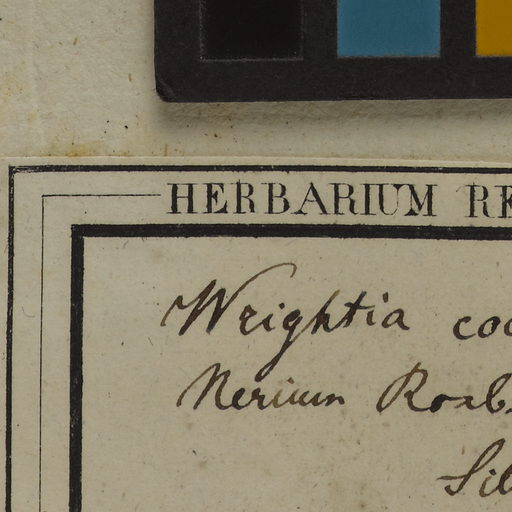 HERBARIUM RE
Wrightia coc
Nerium Roxb.
Sil